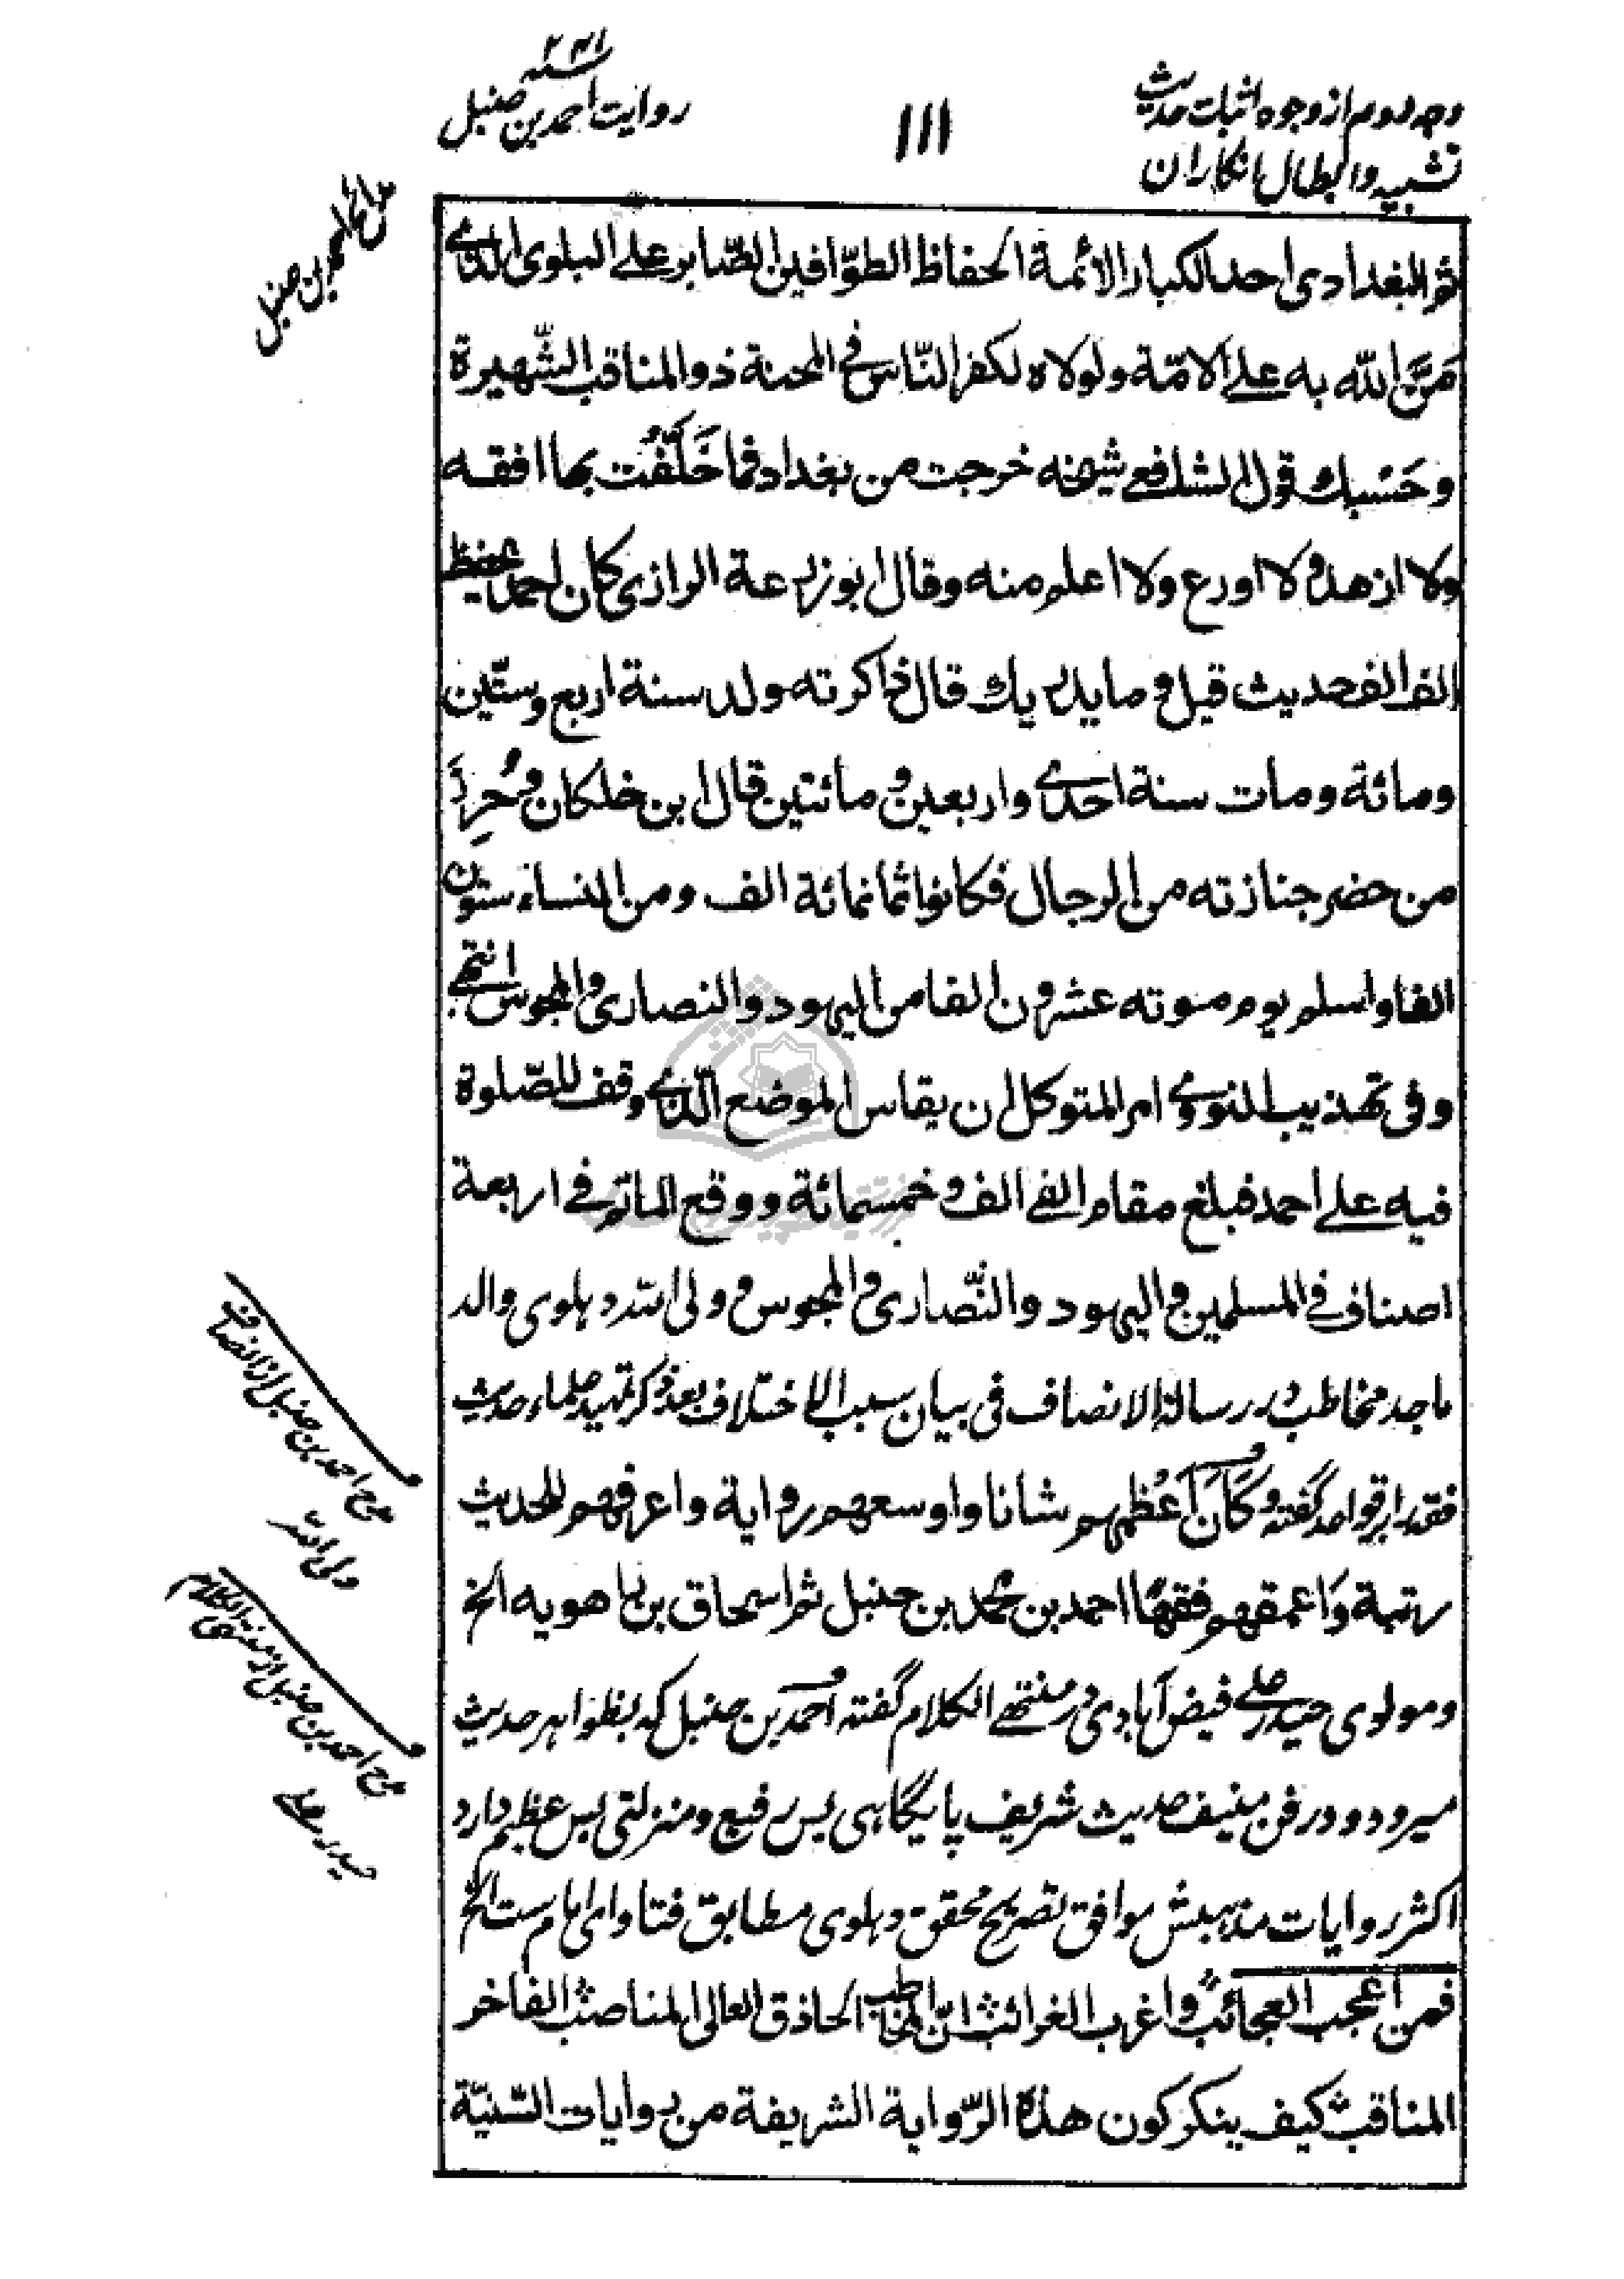 وجه دوم از وجوه اثبات حدیث
تشبیه و ابطال انکار ان
۱۱۱
سنه ۲۴۱
روایت احمد بن حنبل
مدائح احمد بن حنبل
ثم البغدادی احد الکبار الائمة الحفاظ الطوّافین الصّابر علی البلوی الذی
مَنَّ الله به علی الامّة ولولاه لکفر النّاس فی المحنة ذو المناقب الشّهیرة
وحَسْبك قول الشافعی شیخه خرجت من بغداد فما خَلَّفْت بها افقه
ولا ازهد ولا اورع ولا اعلم منه وقال ابو زرعة الرازی کان احمد یحفظ
الف الف حدیث قیل وما یدریك قال ذاکرته ولد سنة اربع وستّین
ومائة ومات سنة احدی واربعین ومائتین قال ابن خلکان وحُزِرَ
من حضر جنازته من الرجال فکانوا ثمانمائة الف ومن النساء ستون
الفا واسلم یوم موته عشرون الفا من الیهود والنصاری والمجوس انتهی
وفی تهذیب النووی امر المتوکل ان یقاس الموضع الّذی وقف للصّلوة
فیه علی احمد فبلغ مقام الفی الف وخمسمائة ووقع الماتم فی اربعة
اصناف فی المسلمین والیهود والنّصاری والمجوس و ولی الله دهلوی والد
ماجد مخاطب در رسالۀ الانصاف فی بیان سبب الاختلاف بعد ذکر تمهید علماء حدیث
فقه را بر قواعد گفته وَکَانَ اَعْظَمهم شأنا واوسعهم روایة واعرفهم للحدیث
رتبة وَاعمقهم فقهًا احمد بن محمد بن حنبل ثم اسحاق بن راهویه الخ
و مولوی حیدر علی فیض آبادی در منتهی الکلام گفته احمد بن حنبل که بظواهر حدیث
میرود و در فن منیف حدیث شریف پایگاهی بس رفیع و منزلتی بس عظیم دارد
اکثر روایات مذهبش موافق تصریح محقق دهلوی مطابق فتاوای امام ست الخ
فمن اعجب العجائب واغرب الغرائب انّ المخاطب الحاذق العالی المناصب الفاخر
المناقب کیف ینکر کون هذه الرّوایة الشریفة من روایات السّنیّة
مدح احمد بن حنبل از انصاف
ولی الله
مدح احمد بن حنبل از منتهی الکلام
حیدر علی